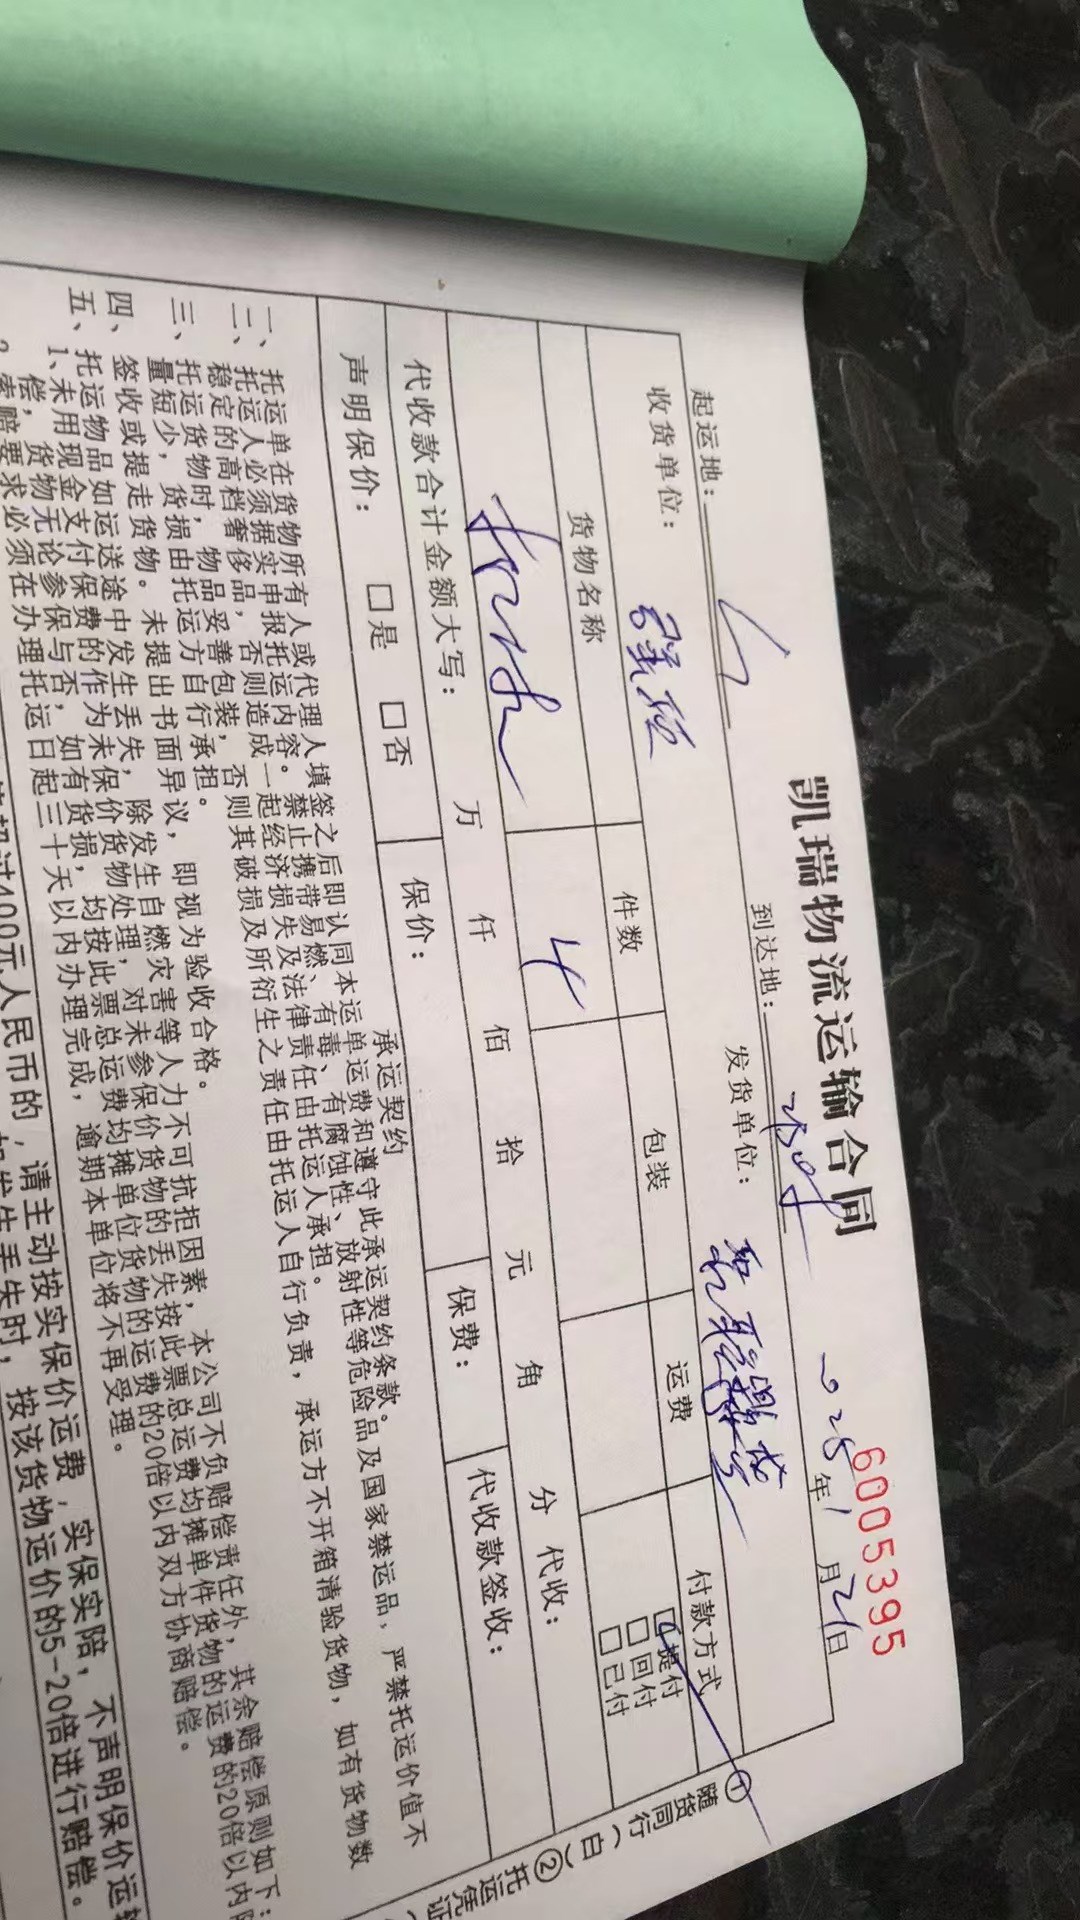 凯瑞物流运输合同
6005395
年1月21日
起运地： 到达地：
收货单位： 发货单位：
货物名称 件数 包装 运费 付款方式
4 提付
回付
已付
代收款合计金额大写： 万 仟 佰 拾 元 角 分 代收：
声明保价： 是 否 保价： 保费： 代收款签收：
承运契约
托运单在货物所有人或代理人填签之后即认同本运单运费和遵守此承运契约条款。
二、托运人必须据实申报托运内容。禁止携带易燃、有毒、有腐蚀性、放射性等危险品及国家禁运品，严禁托运价值不
稳定的高档奢侈品，否则造成一起经济损失及法律责任由托运人承担。
三、托运货物时，物品妥善包装，否则其破损及所衍生之责任由托运人自行负责，承运方不开箱清验货物，如有货物数
量短少，货损由托运方自行承担。
四、签收或提走货物。未提出书面异议，即视为验收合格。
五、托运物品如运送途中发生丢失，除发生自燃灾害等人力不可抗拒因素，本公司不负赔偿责任外，其余赔偿原则如下：
1、未用现金支付保费的作为未保价货物处理，对未参保价货物的丢失按此票总运费均摊单件货物的运费的20倍以内
偿，货物无论参保与否，如有货损，均按此票总运费均摊单位货物的运费的20倍以内双方协商赔偿。
索赔要求必须在办理托运日起三十天以内办理完成，逾期本单位将不再受理。
超过400元人民币的，请主动按实保价运费，实保实陪，不声明保价运
发生丢失时，按该货物运价的5-20倍进行赔偿。
①随货同行（白）②托运凭证